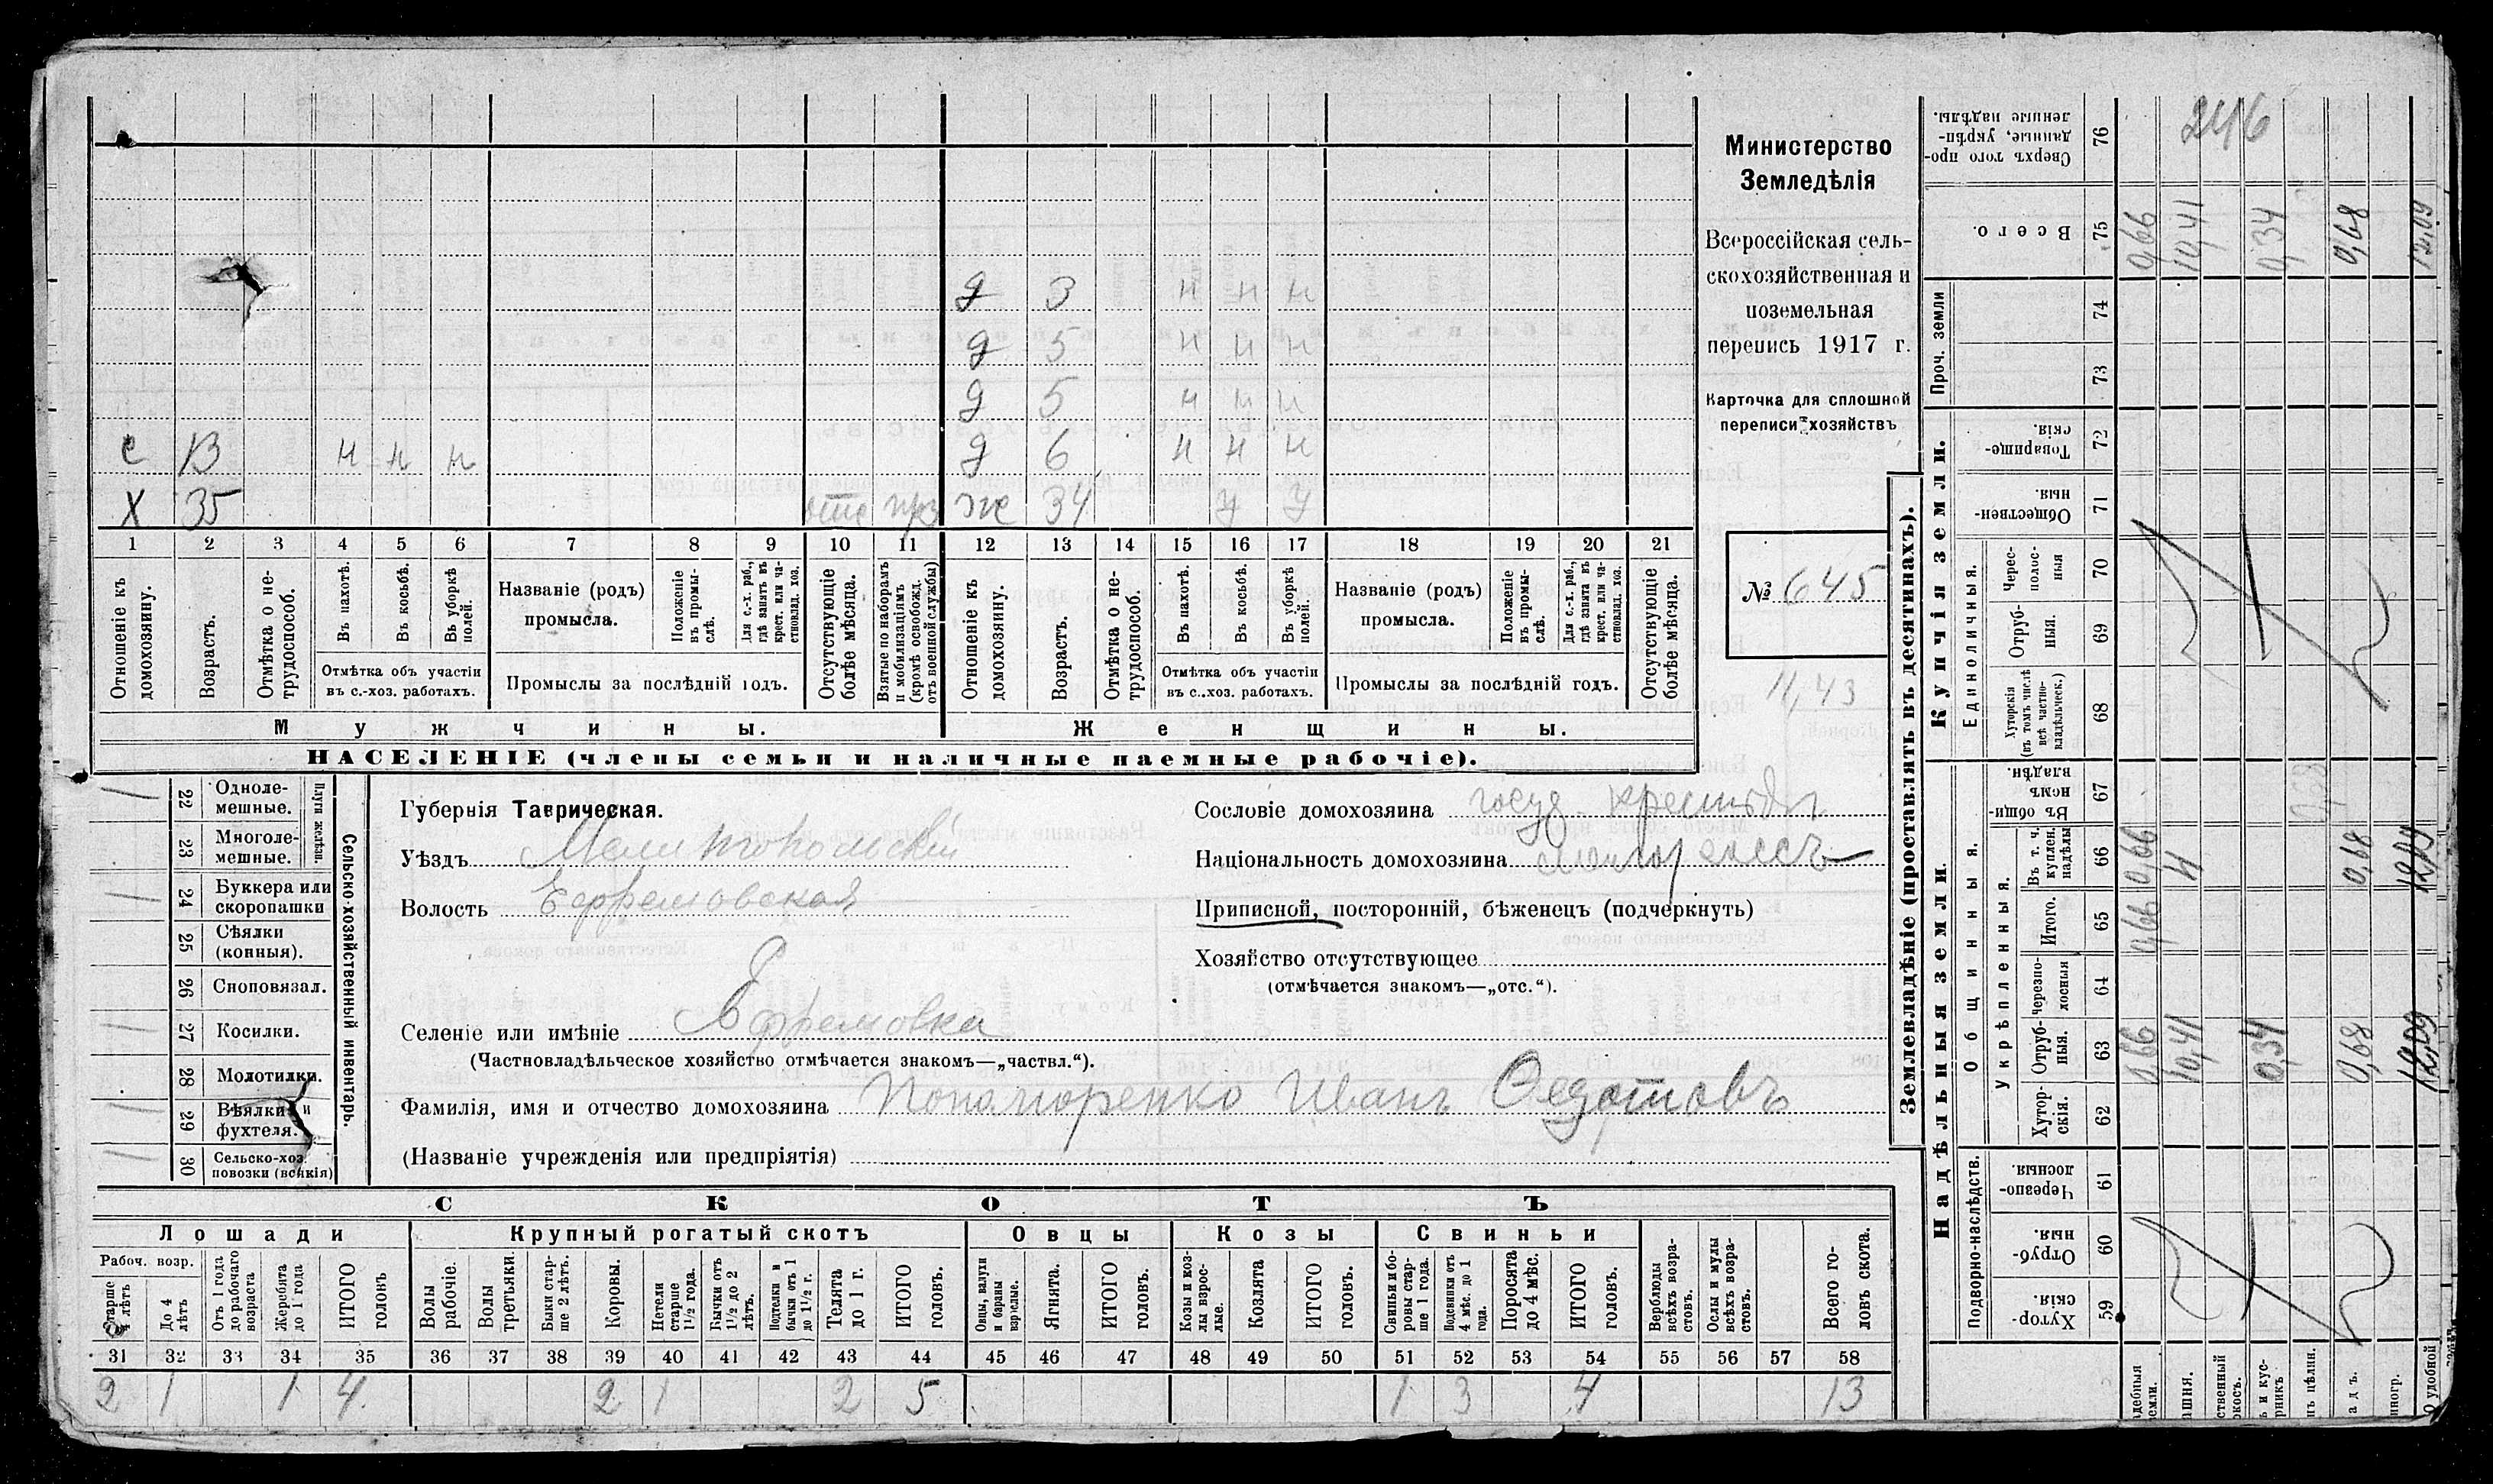 д 3 н н н
д 5 н н н
д 5 н н н
с 13 н н н д 6 н н н
х 35 отс ж 34 у у
1 2 3 4 5 6 7 8 9 10 11 12 13 14 15 16 17 18 19 20 21
Отношеніе къ домохозяину.
Возрастъ.
Отмѣтка о не-
трудоспособ.
Въ пахотѣ.
Въ косьбѣ.
Въ уборкѣ
полей.
Отмѣтка объ участіи
въ с.-хоз. работахъ.
Названіе (родъ)
промысла.
Положеніе
въ промы-
слѣ.
Для с.-х. раб.,
гдѣ занятъ въ
крест. или ча-
стновлад. хоз.
Промыслы за послѣдній годъ.
Отсутствующіе
болѣе мѣсяца.
Взятые по наборамъ
и мобилизаціямъ
(кромѣ освобожд.
отъ военной службы)
Отношеніе къ
домохозяину.
Возрастъ.
Отмѣтка о не-
трудоспособ.
Въ пахотѣ.
Въ косьбѣ.
Въ уборкѣ
полей.
Отмѣтка объ участіи
въ с.-хоз. работахъ.
Названіе (родъ)
промысла.
Положеніе
въ промы-
слѣ.
Для с.-х. раб.,
гдѣ занятъ въ
крест. или ча-
стновлад. хоз.
Промыслы за послѣдній годъ.
Отсутствующіе
болѣе мѣсяца.
Мужчины. Женщины.
НАСЕЛЕНІЕ (члены семьи и наличные наемные рабочіе).
Министерство
Земледѣлія
Всероссійская сель-
скохозяйственная и
поземельная
перепись 1917 г.
Карточка для сплошной
переписи хозяйствъ
№ 645
11,43
22 Одноле-
мешные.
23 Многоле-
мешные.
Плуги желѣзн.
24 Буккера или
скоропашки
25 Сѣялки
(конныя).
26 Сноповязал.
27 Косилки.
28 Молотилки.
29 Вѣялки и
фухтеля.
30 Сельско-хоз.
повозки (всякія)
Сельско-хозяйственный инвентарь.
Губернія Таврическая.
Уѣздъ Мелитопольскій
Волость Ефремовская
Селеніе или имѣніе Ефремовка
(Частновладѣльческое хозяйство отмѣчается знакомъ—„частвл.“).
Фамилія, имя и отчество домохозяина Пономоренко Иванъ Федотовъ
(Названіе учрежденія или предпріятія)
Сословіе домохозяина госуд. крестьян
Національность домохозяина малороссъ
Приписной, посторонній, бѣженецъ (подчеркнуть)
Хозяйство отсутствующее
(отмѣчается знакомъ—„отс.“).
СКОТЪ
Лошади Крупный рогатый скотъ Овцы Козы Свиньи
Рабоч. возр.
Старше
4 лѣтъ
До 4
лѣтъ
Отъ 1 года
до рабочаго
возраста
Жеребята
до 1 года
ИТОГО
головъ
Волы
рабочіе.
Волы
третьяки.
Быки стар-
ше 2 лѣтъ.
Коровы.
Нетели
старше
1½ года.
Бычки отъ
1½ до 2
лѣтъ.
Подтелки и
бычки отъ 1
до 1½ г.
Телята
до 1 г.
ИТОГО
головъ.
Овцы, валухи
и бараны
взрослые.
Ягнята.
ИТОГО
головъ.
Козы и коз-
лы взрос-
лые.
Козлята
ИТОГО
головъ.
Свиньи и бо-
ровы стар-
ше 1 года.
Подсвинки отъ
4 мѣс. до 1
года.
Поросята
до 4 мѣс.
ИТОГО
головъ.
Верблюды
всѣхъ возра-
стовъ.
Ослы и мулы
всѣхъ возра-
стовъ.
Всего го-
ловъ скота.
31 32 33 34 35 36 37 38 39 40 41 42 43 44 45 46 47 48 49 50 51 52 53 54 55 56 57 58
2 1 1 4 2 1 2 5 1 3 4 13
Землевладѣніе (проставлять въ десятинахъ).
Надѣльныя земли. Купчія земли. Проч. земли
Подворно-наслѣдств.
Общинныя.
Укрѣпленныя.
Единоличныя.
Хутор-
скія. 59
Отруб-
ныя. 60
Черезпо-
лосныя 61
Хутор-
скія. 62
Отруб-
ныя. 63
Черезпо-
лосныя 64
Итого. 65
Въ т. ч.
куплен.
надѣлы 66
Въ общи
нномъ
владѣн. 67
Хуторскія
(въ томъ числѣ
всѣ частно-
владѣльческ.) 68
Отруб-
ныя. 69
Черес-
полос-
ныя 70
Обществен-
ныя. 71
Товарище-
скія. 72
73
74
Всего. 75
Сверхъ того про-
данные, укрѣп-
ленные надѣлы. 76
246
0,66 10,41 0,34 0,68 12,09
0,66 11 0,68 12,09
0,66
0,66 10,41 0,34 0,68 12,09
0,68